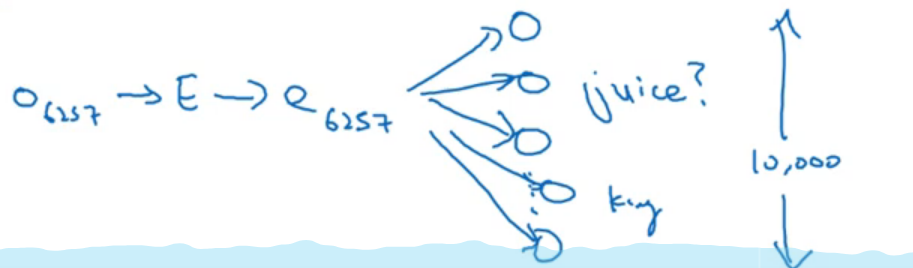 o6257 → E → e6257
juice?
king
10,000